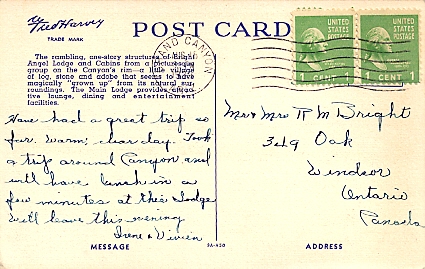 by
Fred Harvey
TRADE MARK
POST CARD
The rambling, one-story structures of Bright
Angel Lodge and Cabins form a picturesque
group on the Canyon's rim—a little village
of log, stone and adobe that seems to have
magically "grown up" from its natural sur-
roundings. The Main Lodge provides attrac-
tive lounge, dining and entertainment
facilities.
GRAND CANYON
UNITED STATES POSTAGE
1 CENT 1
UNITED STATES POSTAGE
1 CENT 1
Have had a great trip so
far. Warm, clear day. Took
a trip around Canyon and
will have lunch in a
few minutes at this Lodge
Will leave this evening
Irene & Vivien
Mr & Mrs R M Bright
349 Oak
Windsor
Ontario
Canada
MESSAGE
ADDRESS